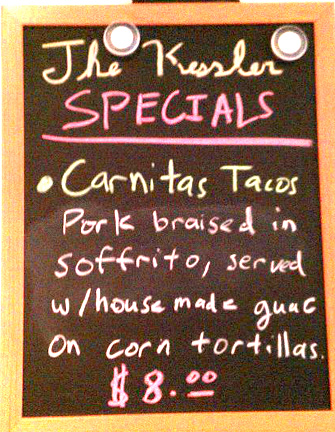 The Kessler
SPECIALS
• Carnitas Tacos
Pork braised in
soffrito, served
w/house made guac
on corn tortillas.
$8.00